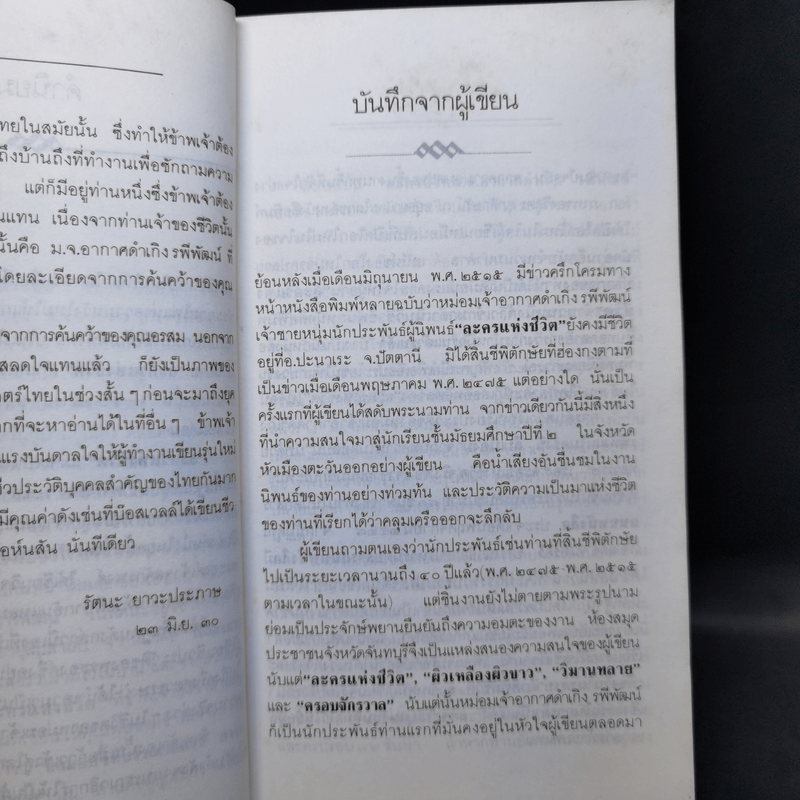 ทยในสมัยนั้น ซึ่งทำให้ข้าพเจ้าต้อง
ถึงบ้านถึงที่ทำงานเพื่อซักถามความ
แต่ก็มีอยู่ท่านหนึ่งซึ่งข้าพเจ้าต้อง
นแทน เนื่องจากท่านเจ้าของชีวิตนั้น
นั้นคือ ม.จ.อากาศดำเกิง รพีพัฒน์ ที่
โดยละเอียดจากการค้นคว้าของคุณ
จากการค้นคว้าของคุณอรสม นอกจาก
สลดใจแทนแล้ว ก็ยังเป็นภาพของ
ตร์ไทยในช่วงสั้น ๆ ก่อนจะมาถึงยุค
กที่จะหาอ่านได้ในที่อื่น ๆ ข้าพเจ้า
แรงบันดาลใจให้ผู้ทำงานเขียนรุ่นใหม่
ชีวประวัติบุคคลสำคัญของไทยกันมาก
มีคุณค่าดังเช่นที่บ๊อสเวลล์ได้เขียนชีว
อห์นสัน นั่นทีเดียว
รัตนะ ยาวะประภาษ
๒๓ มิ.ย. ๓๐
บันทึกจากผู้เขียน
ย้อนหลังเมื่อเดือนมิถุนายน พ.ศ.๒๕๑๕ มีข่าวครึกโครมทาง
หน้าหนังสือพิมพ์หลายฉบับว่าหม่อมเจ้าอากาศดำเกิง รพีพัฒน์
เจ้าชายหนุ่มนักประพันธ์ผู้นิพนธ์“ละครแห่งชีวิต”ยังคงมีชีวิต
อยู่ที่อ.ปะนาเระ จ.ปัตตานี มิได้สิ้นชีพิตักษัยที่ฮ่องกงตามที่
เป็นข่าวเมื่อเดือนพฤษภาคม พ.ศ. ๒๔๗๕ แต่อย่างใด นั่นเป็น
ครั้งแรกที่ผู้เขียนได้สดับพระนามท่าน จากข่าวเดียวกันนี้มีสิ่งหนึ่ง
ที่นำความสนใจมาสู่นักเรียนชั้นมัธยมศึกษาปีที่ ๒ ในจังหวัด
หัวเมืองตะวันออกอย่างผู้เขียน คือน้ำเสียงอันชื่นชมในงาน
นิพนธ์ของท่านอย่างท่วมท้น และประวัติความเป็นมาแห่งชีวิต
ของท่านที่เรียกได้ว่าคลุมเครือออกจะลึกลับ
ผู้เขียนถามตนเองว่านักประพันธ์เช่นท่านที่สิ้นชีพิตักษัย
ไปเป็นระยะเวลานานถึง ๔๐ ปีแล้ว(พ.ศ. ๒๔๗๕ พ.ศ. ๒๕๑๕
ตามเวลาในขณะนั้น) แต่ชิ้นงานยังไม่ตายตามพระรูปนาม
ย่อมเป็นประจักษ์พยานยืนยันถึงความอมตะของงาน ห้องสมุด
ประชาชนจังหวัดจันทบุรีจึงเป็นแหล่งสนองความสนใจของผู้เขียน
นับแต่“ละครแห่งชีวิต”, “ผิวเหลืองผิวขาว”, “วิมานทลาย”
และ “ครอบจักรวาล” นับแต่นั้นหม่อมเจ้าอากาศดำเกิง รพีพัฒน์
ก็เป็นนักประพันธ์ท่านแรกที่มั่นคงอยู่ในหัวใจผู้เขียนตลอดมา